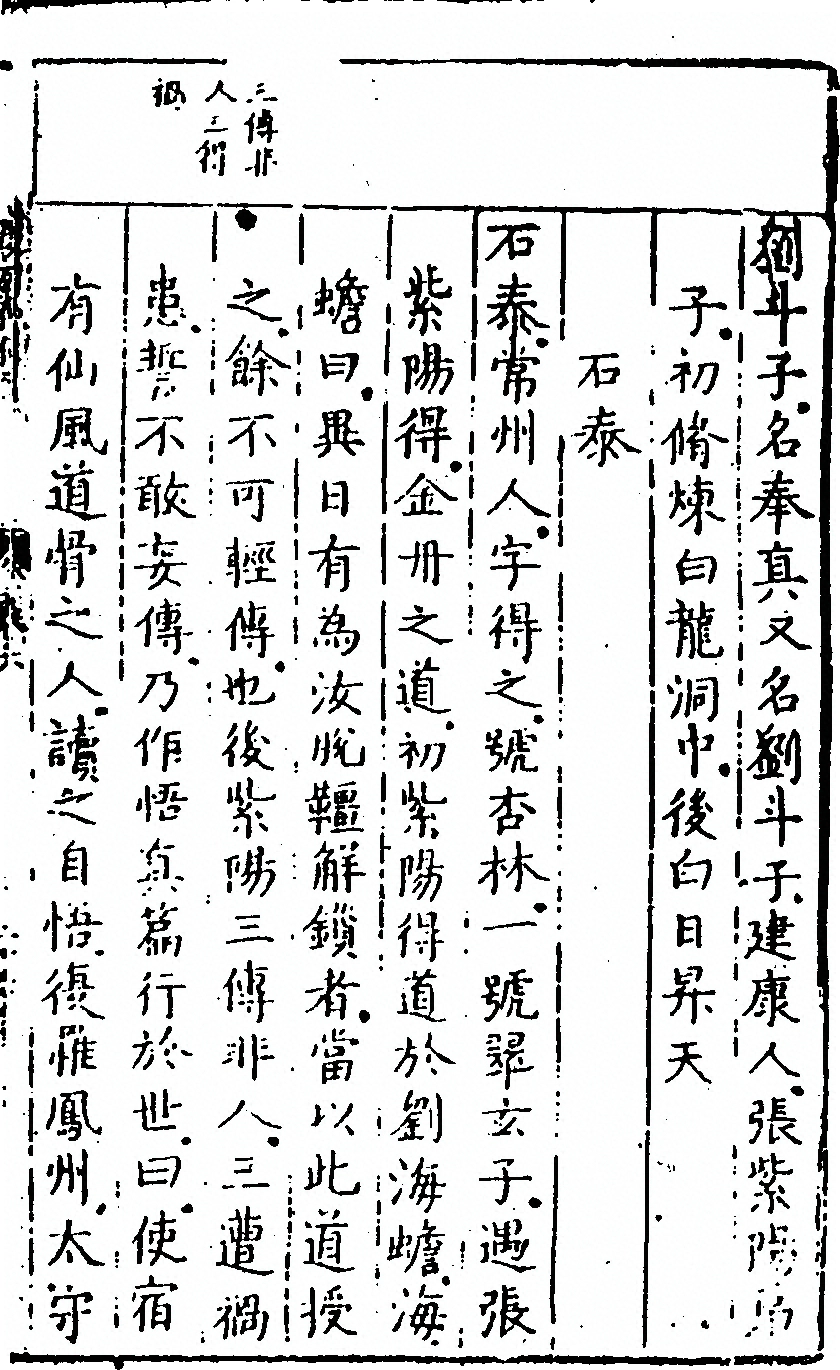 三傳非
人三得
禍
劉斗子名奉真又名劉斗子建康人張紫陽弟
子初脩煉白龍洞中後白日昇天
石泰
石泰常州人字得之號杏林一號翠玄子遇張
紫陽得金丹之道初紫陽得道於劉海蟾海
蟾曰異日有為汝脫韁解鎖者當以此道授
之餘不可輕傳也後紫陽三傳非人三遭禍
患誓不敢妄傳乃作悟真篇行於世曰使宿
有仙風道骨之人讀之自悟後罹鳳州太守